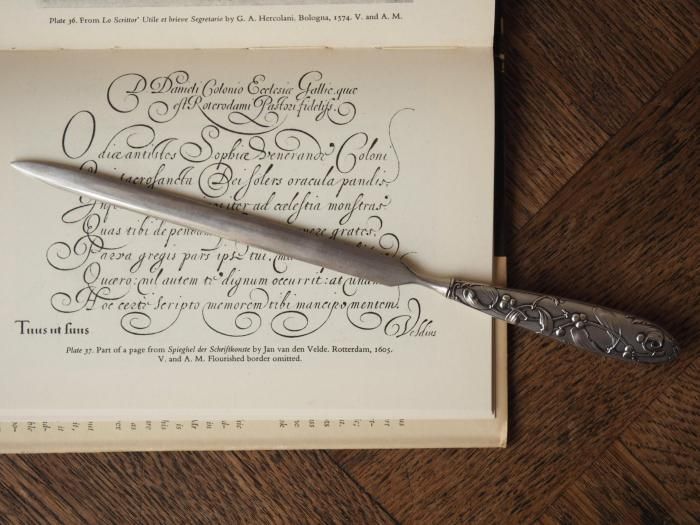 Plate 36. From Lo Scrittor' Utile et brieve Segretario by G. A. Hercolani. Bologna, 1574. V. and A. M.
D. Danieli Colonio Ecclesiæ Gallic. quæ
est Roterodami Pastori fidelijs.
Odiæ antistes Sophiæ venerande Coloni
sacrosancta Dei solers oracula pandis,
iter ad cœlestia monstras
Quas tibi de grates,
Parva gregis pars ipse tui,
Quæro: nil autem te dignum occurrit: at
Hoc certe scripto memorem tibi mancipo mentem.
Tuus ut suus
Veldius
Plate 37. Part of a page from Spieghel der Schriftkonste by Jan van den Velde. Rotterdam, 1605.
V. and A. M. Flourished border omitted.